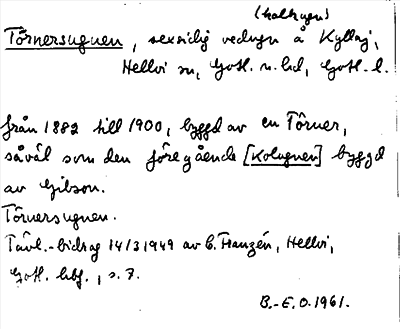 (kalkugn)
Törnersugnen, sexsidig vedugn å Kyllaj,
Hellvi sn, Gotl. n. hd, Gotl. l.
från 1882 till 1900, byggd av en Törner,
såväl som den föregående [Kolugnen] byggd
av Gibson.
Törnersugnen.
Tävl.-bidrag 14/3 1949 av C. Franzén, Hellvi,
Gotl. hbf., s. 7.
B.-E. O. 1961.